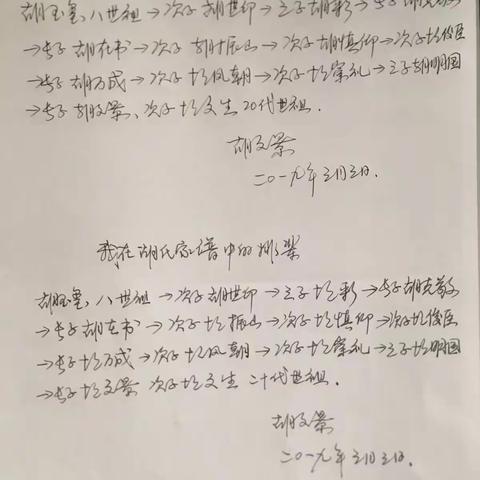 胡玉玺八世祖→次子胡世印→三子胡彩→长子胡克敬
→长子胡在书→次子胡振山→次子胡慎仰→次子胡俊臣
→长子胡万成→次子胡凤朝→次子胡崇礼→三子胡明国
→长子胡文景、次子胡文生20代世祖.
胡文景
二〇一九年三月三日.
我在胡氏家谱中的排辈
胡玉玺,八世祖→次子胡世印→三子胡彩→长子胡克敬
→长子胡在书→次子胡振山→次子胡慎仰→次子胡俊臣
→长子胡万成→次子胡凤朝→次子胡崇礼→三子胡明国
→长子胡文景 次子胡文生 二十代世祖.
胡文景
二〇一九年三月三日.